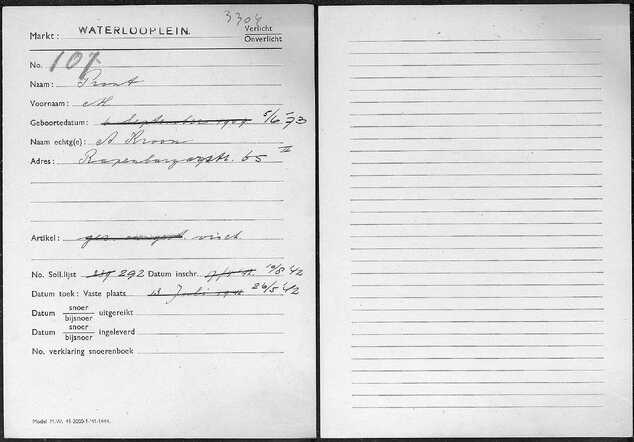 3304
Markt: WATERLOOPLEIN. Verlicht
Onverlicht
No. 107
Naam: Pront
Voornaam: M
Geboortedatum: 6 September 1909 5/6 -73
Naam echtg(e): A Kroon
Adres: Rapenburgerstr. 65 II
Artikel: visch
No. Soll.lijst 292 Datum inschr. 19/8 '42
Datum toek: Vaste plaats 13 Juli 26/5 '42
Datum snoer/bijsnoer uitgereikt
Datum snoer/bijsnoer ingeleverd
No. verklaring snoerenboek